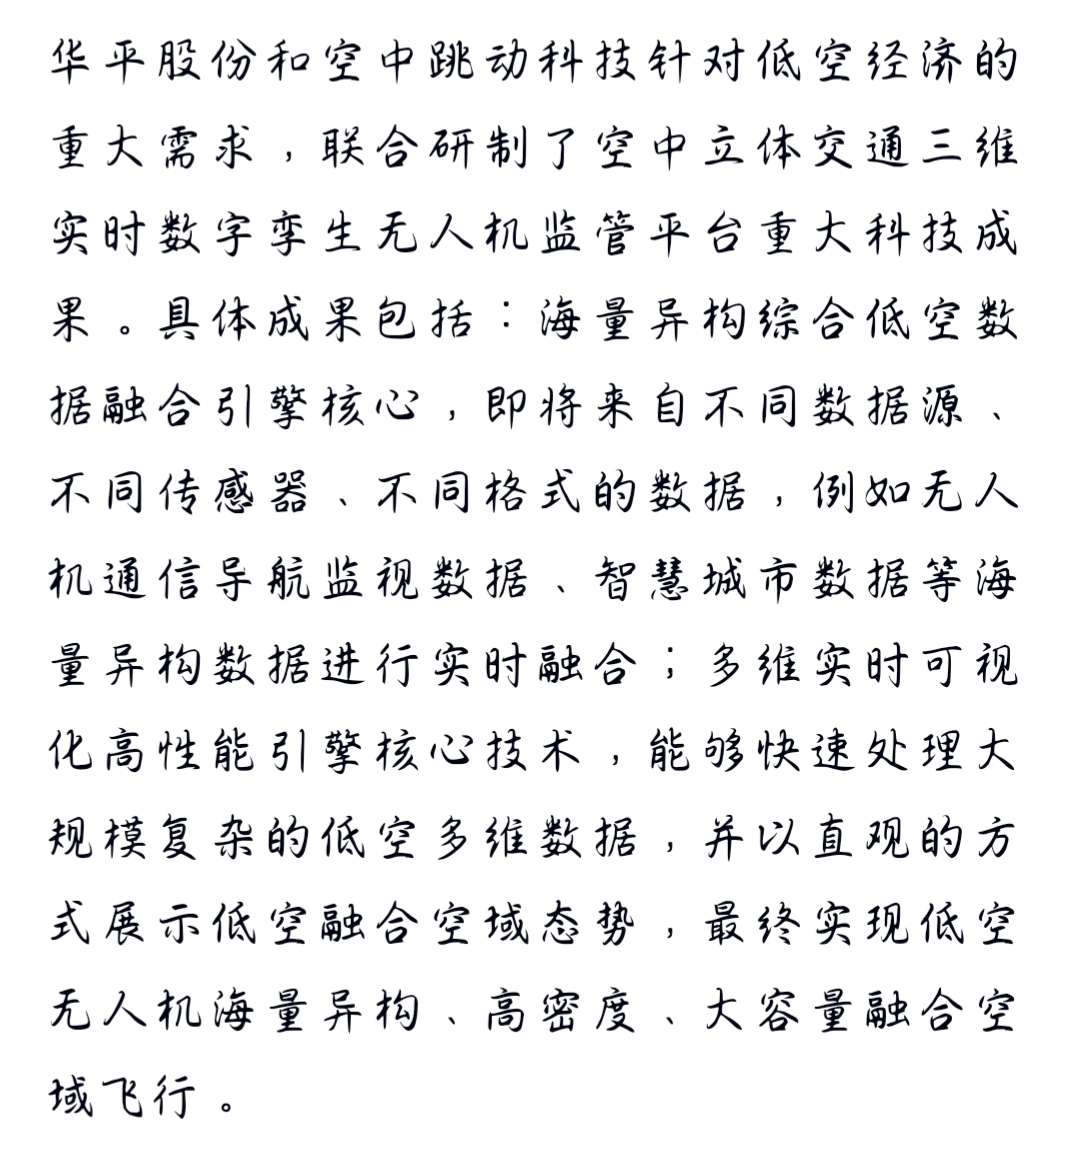 华平股份和空中跳动科技针对低空经济的
重大需求，联合研制了空中立体交通三维
实时数字孪生无人机监管平台重大科技成
果。具体成果包括：海量异构综合低空数
据融合引擎核心，即将来自不同数据源、
不同传感器、不同格式的数据，例如无人
机通信导航监视数据、智慧城市数据等海
量异构数据进行实时融合；多维实时可视
化高性能引擎核心技术，能够快速处理大
规模复杂的低空多维数据，并以直观的方
式展示低空融合空域态势，最终实现低空
无人机海量异构、高密度、大容量融合空
域飞行。